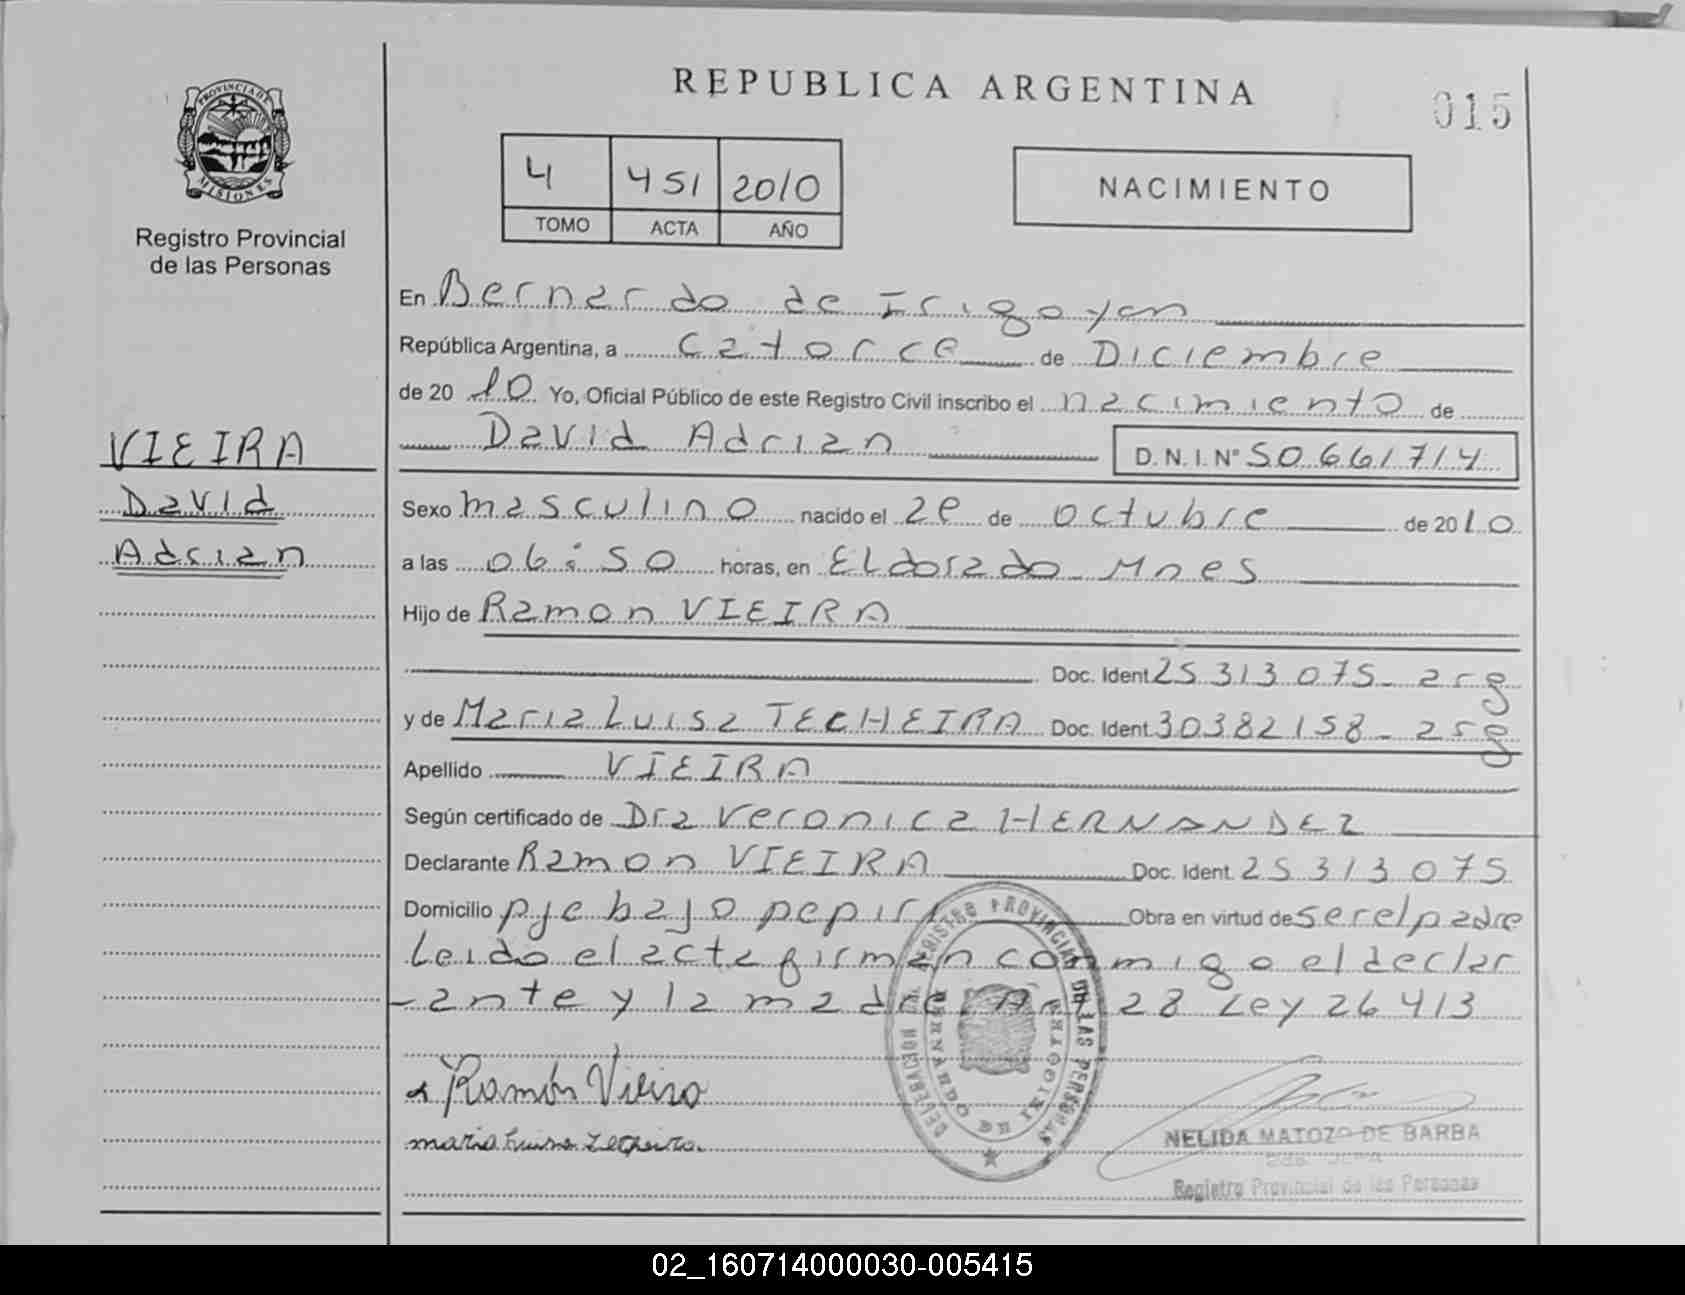 REPUBLICA ARGENTINA
015
PROVINCIA DE MISIONES
Registro Provincial
de las Personas
4 451 2010
TOMO ACTA AÑO
NACIMIENTO
En Bernardo de Irigoyen
República Argentina, a catorce de Diciembre
de 20 10 Yo, Oficial Público de este Registro Civil inscribo el nacimiento de
David Adrian D.N.I. N° 50661714
VIEIRA
David
Adrian
Sexo masculino nacido el de octubre de 2010
a las 06:50 horas, en Eldorado Mnes
Hijo de Ramon VIEIRA
Doc. Ident 25313075- arg
y de Maria Luisa TECHEIRA Doc. Ident 30382158- arg
Apellido VIEIRA
Según certificado de Dra Veronica HERNANDEZ
Declarante Ramon VIEIRA Doc. Ident. 25313075
Domicilio pje bajo pepiri Obra en virtud de ser el padre
Leido el acta firman conmigo el declar
-ante y la madre Art 28 Ley 26413
Ramón Vieira
maria Luisa Techeira.
DELEGACION DEL REGISTRO PROVINCIAL DE LAS PERSONAS
BERNARDO DE IRIGOYEN
NELIDA MATOZO DE BARBA
Registro Provincial de las Personas
02_160714000030-005415